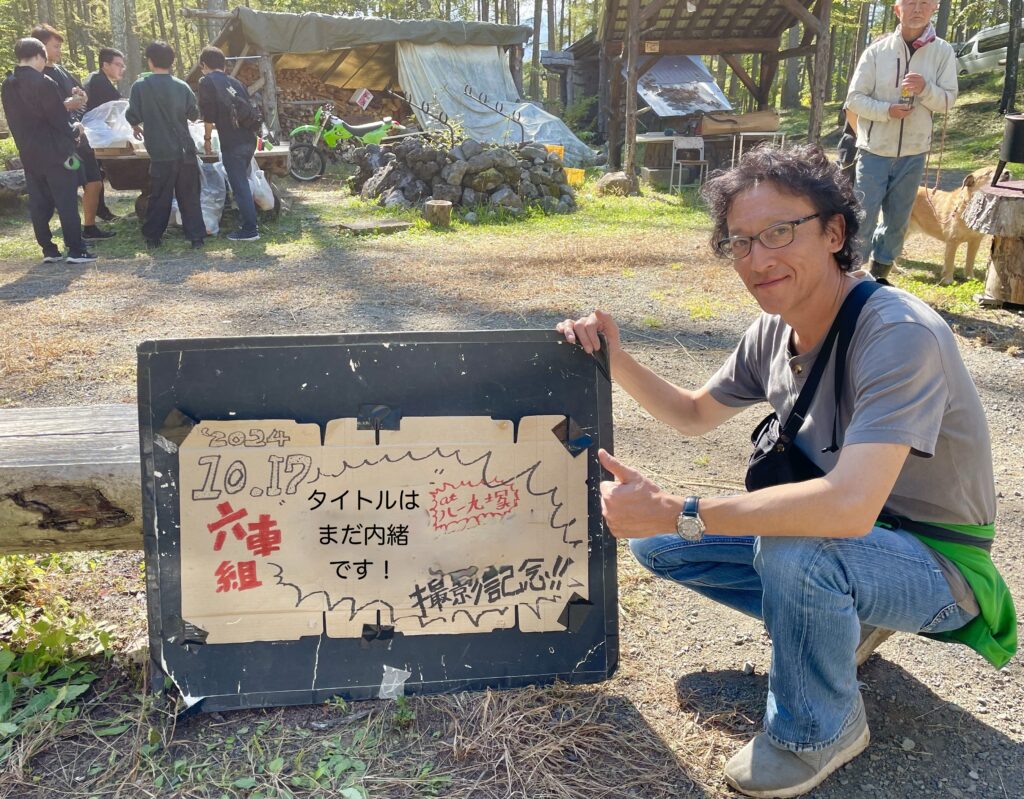 '2024
10.17
六車組
タイトルは
まだ内緒
です！
"at
八一九塚"
撮影記念!!